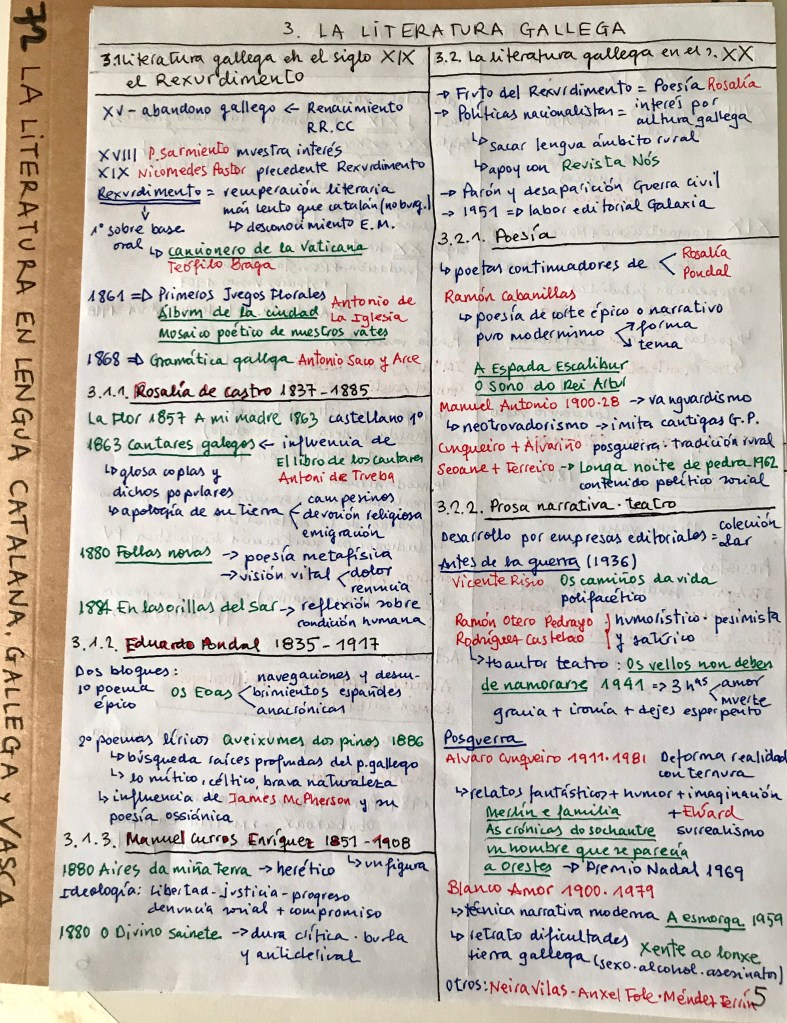 72 LA LITERATURA EN LENGUA CATALANA, GALLEGA Y VASCA
3. LA LITERATURA GALLEGA
3.1 Literatura gallega en el siglo XIX
el Rexurdimento
XV - abandono gallego ← Renacimiento
RR.CC
XVIII P. Sarmiento muestra interés
XIX Nicomedes Pastor precedente Rexurdimento
Rexurdimento = recuperación literaria
más lento que catalán (no burg.)
↳ desconocimiento E.M.
1º sobre base
oral ↳ cancionero de la Vaticana
Teófilo Braga
1861 ⇒ Primeros Juegos Florales
Álbum de la ciudad Antonio de
La Iglesia
Mosaico poético de nuestros vates
1868 ⇒ Gramática gallega Antonio Saco y Arce
3.1.1. Rosalía de Castro 1837-1885
La Flor 1857 A mi madre 1863 castellano 1º
1863 Cantares galegos ← influencia de
El libro de los cantares
Antoni de Trueba
↳ glosa coplas y
dichos populares
↳ apología de su tierra campesinos
devoción religiosa
emigración
1880 Follas novas → poesía metafísica
→ visión vital dolor
renuncia
1884 En las orillas del Sar → reflexión sobre
condición humana
3.1.2. Eduardo Pondal 1835-1917
Dos bloques:
1º poema
épico Os Eoas navegaciones y descu-
brimientos españoles
anacrónicas
2º poemas líricos Queixumes dos pinos 1886
↳ búsqueda raíces profundas del p. gallego
↳ lo mítico, céltico, brava naturaleza
↳ influencia de James McPherson y su
poesía ossiánica
3.1.3. Manuel Curros Enríquez 1851-1908
1880 Aires da miña terra → herético ↳ un figura
Ideología: libertad - justicia - progreso
denuncia social + compromiso
1880 O Divino Sainete → dura crítica · burla
y anticlerical
3.2. La literatura gallega en el s. XX
→ Fruto del Rexurdimento = Poesía Rosalía
→ Políticas nacionalistas = interés por
cultura gallega
↳ sacar lengua ámbito rural
↳ apoy con Revista Nós
→ Parón y desaparición Guerra civil
→ 1951 ⇒ labor editorial Galaxia
3.2.1. Poesía
↳ poetas continuadores de Rosalía
Pondal
Ramón Cabanillas
↳ poesía de corte épico o narrativo
puro modernismo forma
tema
A Espada Escalibur
O Soño do Rei Artul
Manuel Antonio 1900-28 → vanguardismo
↳ neotrovadorismo → imita cantigas G.P.
Cunqueiro + Alvariño posguerra · tradición rural
Seoane + Ferreiro → Longa noite de pedra 1962
contenido político social
3.2.2. Prosa narrativa · teatro
Desarrollo por empresas editoriales = colección
Antes de la guerra (1936)
Vicente Risio Os camiños da vida
polifacético
Ramón Otero Pedrayo } humorístico · pesimista
Rodríguez Castelao y satírico
↳ tb autor teatro: Os vellos non deben
de namorarse 1941 ⇒ 3 hªs amor
muerte
gracia + ironía + dejes esperpento
Posguerra
Alvaro Cunqueiro 1911-1981 Deforma realidad
con ternura
↳ relatos fantásticos + humor + imaginación
Merlín e familia + Elward
As crónicas do sochantre surrealismo
un hombre que se parecía
a Orestes → Premio Nadal 1969
Blanco Amor 1900-1979
↳ técnica narrativa moderna A esmorga 1959
↳ retrato dificultades Xente ao lonxe
tierra gallega (sexo · alcohol · asesinatos)
otros: Neira Vilas - Anxel Fole - Méndez Ferrín
5